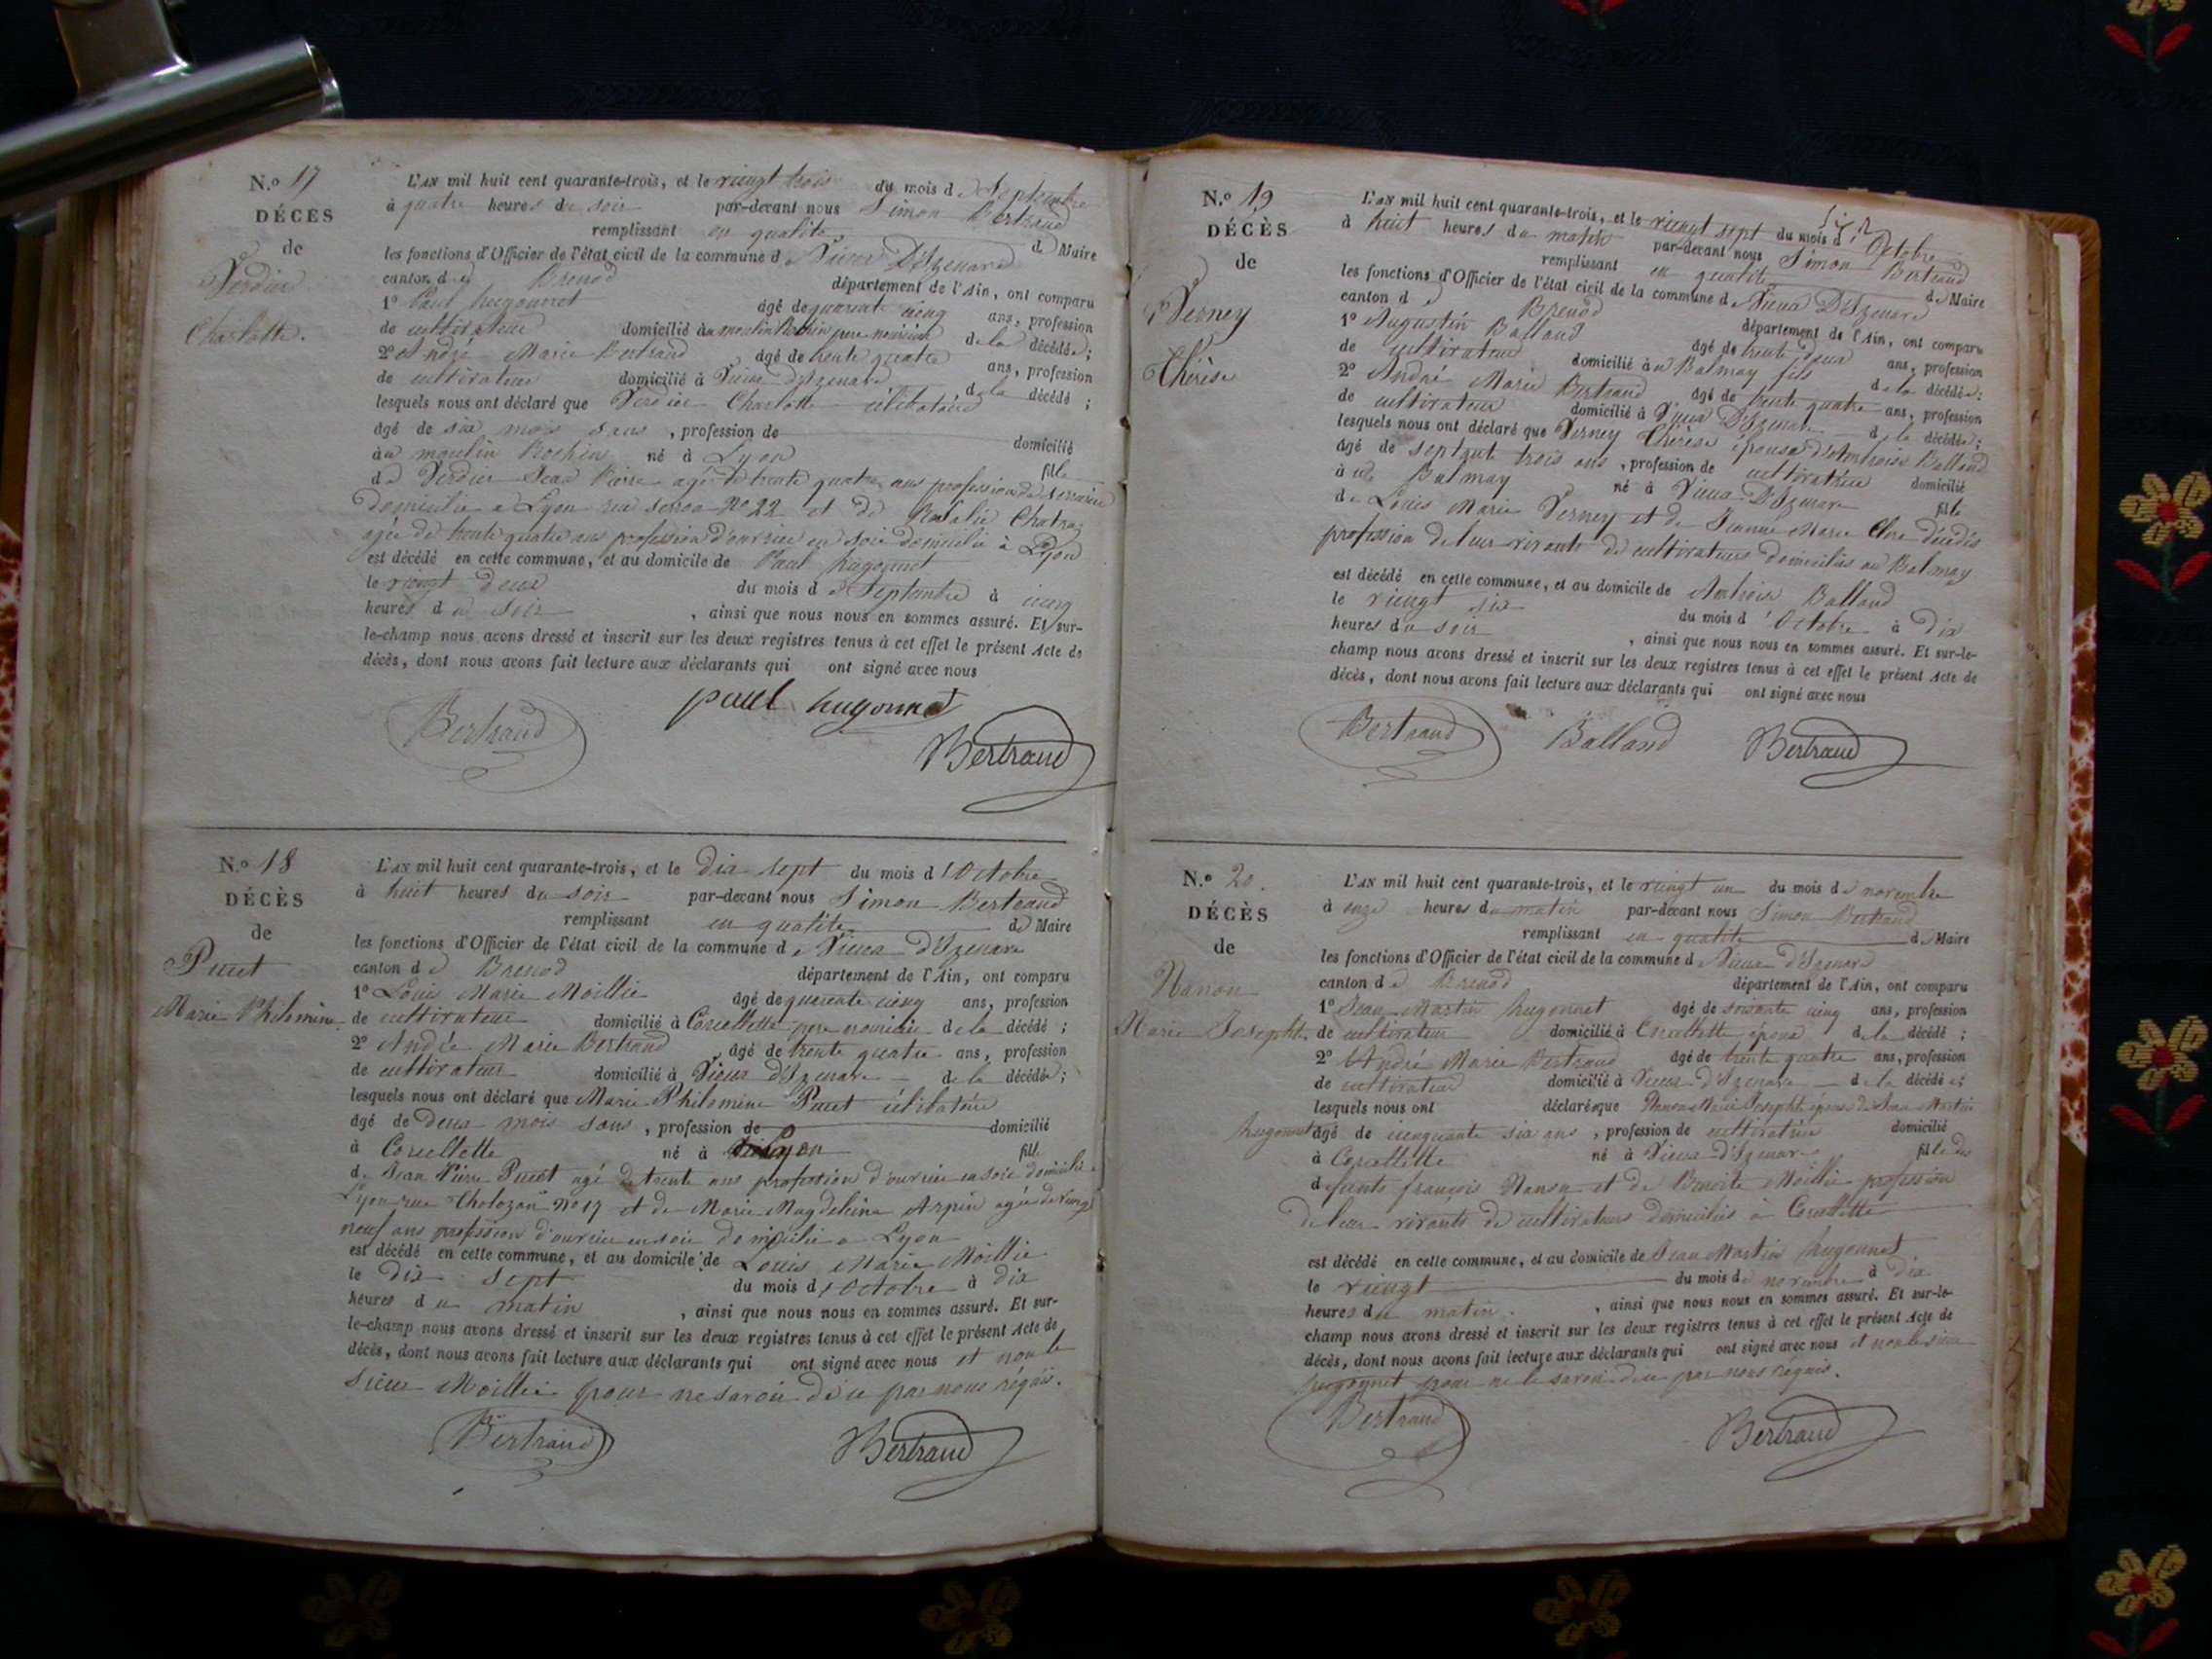 N.º 17
DÉCÈS
de
Verdier
Charlotte.
L'AN mil huit cent quarante-trois, et le vingt trois du mois de Septembre
à quatre heures du soir par-devant nous Simon Bertrand
remplissant en qualité de Maire
les fonctions d'Officier de l'état civil de la commune de Vieux D'Izenave
canton de Brenod département de l'Ain, ont comparu
1º Paul hugonnet âgé de quarante cinq ans, profession
de cultivateur domicilié au moulin Rochin pere nouricier de la décédée;
2º André Marie Bertrand âgé de trente quatre ans, profession
de cultivateur domicilié à Vieux d'Izenave de la décédé;
lesquels nous ont déclaré que Verdier Charlotte célibataire
âgé de six mois sans, profession de domicilié
au moulin Rochin né à Lyon fille
de Verdier Jean Pierre agé de trente quatre ans profession de
domicilié a Lyon rue Nº 22 et de Rosalie
agée de trente quatre ans profession d'ouvrière en soie domicilié à Lyon
est décédé en cette commune, et au domicile de Paul hugonnet
le vingt deux du mois de Septembre à cinq
heures du soir, ainsi que nous nous en sommes assuré. Et sur-
le-champ nous avons dressé et inscrit sur les deux registres tenus à cet effet le présent Acte de
décès, dont nous avons fait lecture aux déclarants qui ont signé avec nous
Bertrand paul hugonnet Bertrand
N.º 18
DÉCÈS
de
Marie Philomine
L'AN mil huit cent quarante-trois, et le dix sept du mois d'Octobre
à huit heures du soir par-devant nous Simon Bertrand
remplissant en qualité de Maire
les fonctions d'Officier de l'état civil de la commune de Vieux d'Izenave
canton de Brenod département de l'Ain, ont comparu
1º Louis Marie Moillie âgé de quarente cinq ans, profession
de cultivateur domicilié à Corcellette pere nouricier de la décédé;
2º André Marie Bertrand, âgé de trente quatre ans, profession
de cultivateur domicilié à Vieux d'Izenave de la décédée;
lesquels nous ont déclaré que Marie Philomine célibataire
âgé de deux mois sans, profession de domicilié
à Corcellette né à Lyon fille
de Jean Pierre agé de trente ans profession d'ouvrier en soie domicilié a
Lyon rue Tholozan nº 17 et de Marie Magdeleine Arpin agée de vingt
neuf ans profession d'ouvrière en soie domicilié a Lyon
est décédé en cette commune, et au domicile de Louis Marie Moillie
le dix sept du mois d'Octobre à dix
heures du matin, ainsi que nous nous en sommes assuré. Et sur-
le-champ nous avons dressé et inscrit sur les deux registres tenus à cet effet le présent Acte de
décès, dont nous avons fait lecture aux déclarants qui ont signé avec nous et non le
Sieur Moillie pour ne savoir de ce par nous réquis.
Bertrand Bertrand
N.º 19
DÉCÈS
de
Verney
Thérèse
L'AN mil huit cent quarante-trois, et le vingt sept du mois d'Octobre
à huit heures du matin par-devant nous Simon Bertrand
remplissant en qualité de Maire
les fonctions d'Officier de l'état civil de la commune de Vieux D'Izenave
canton de Brenod département de l'Ain, ont comparu
1º Augustin Balland âgé de trente deux ans, profession
de cultivateur domicilié au Balmay fils de la décédée;
2º André Marie Bertrand âgé de trente quatre ans, profession
de cultivateur domicilié à Vieux D'Izenave de la décédée;
lesquels nous ont déclaré que Verney Thérèse épouse d'Ambroise Balland
âgé de septante trois ans, profession de cultivatrice domicilié
à u Balmay né à Vieux D'Izenave fille
de Louis Marie Verney et de Jeanne Marie décédés
profession de leur vivants de cultivateurs domiciliés au Balmay
est décédé en cette commune, et au domicile de Ambroise Balland
le vingt six du mois d'Octobre à dix
heures du soir, ainsi que nous nous en sommes assuré. Et sur-le-
champ nous avons dressé et inscrit sur les deux registres tenus à cet effet le présent Acte de
décès, dont nous avons fait lecture aux déclarants qui ont signé avec nous
Bertrand Balland Bertrand
N.º 20.
DÉCÈS
de
Nanon
Marie Josephte
L'AN mil huit cent quarante-trois, et le vingt un du mois de novembre
à onze heures du matin par-devant nous Simon Bertrand
remplissant en qualité de Maire
les fonctions d'Officier de l'état civil de la commune de Vieux d'Izenave
canton de Brenod département de l'Ain, ont comparu
1º Jean Martin hugonnet âgé de soixante cinq ans, profession
de cultivateur domicilié à Corcellette époux de la décédé;
2º André Marie Bertrand âgé de trente quatre ans, profession
de cultivateur domicilié à Vieux d'Izenave de la décédée;
lesquels nous ont déclaré que Nanon Marie Josephte épouse de Jean Martin
hugonnet âgé de cinquante six ans, profession de cultivatrice domicilié
à Corcellette né à Vieux d'Izenave fille des
defunts françois Nanon et de Benoite Moillie profession
de leur vivants de cultivateurs domiciliés à Corcellette
est décédé en cette commune, et au domicile de Jean Martin hugonnet
le vingt du mois de novembre à dix
heures du matin., ainsi que nous nous en sommes assuré. Et sur-le-
champ nous avons dressé et inscrit sur les deux registres tenus à cet effet le présent Acte de
décès, dont nous avons fait lecture aux déclarants qui ont signé avec nous et non le sieur
hugonnet pour ne le savoir de ce par nous réquis.
Bertrand Bertrand